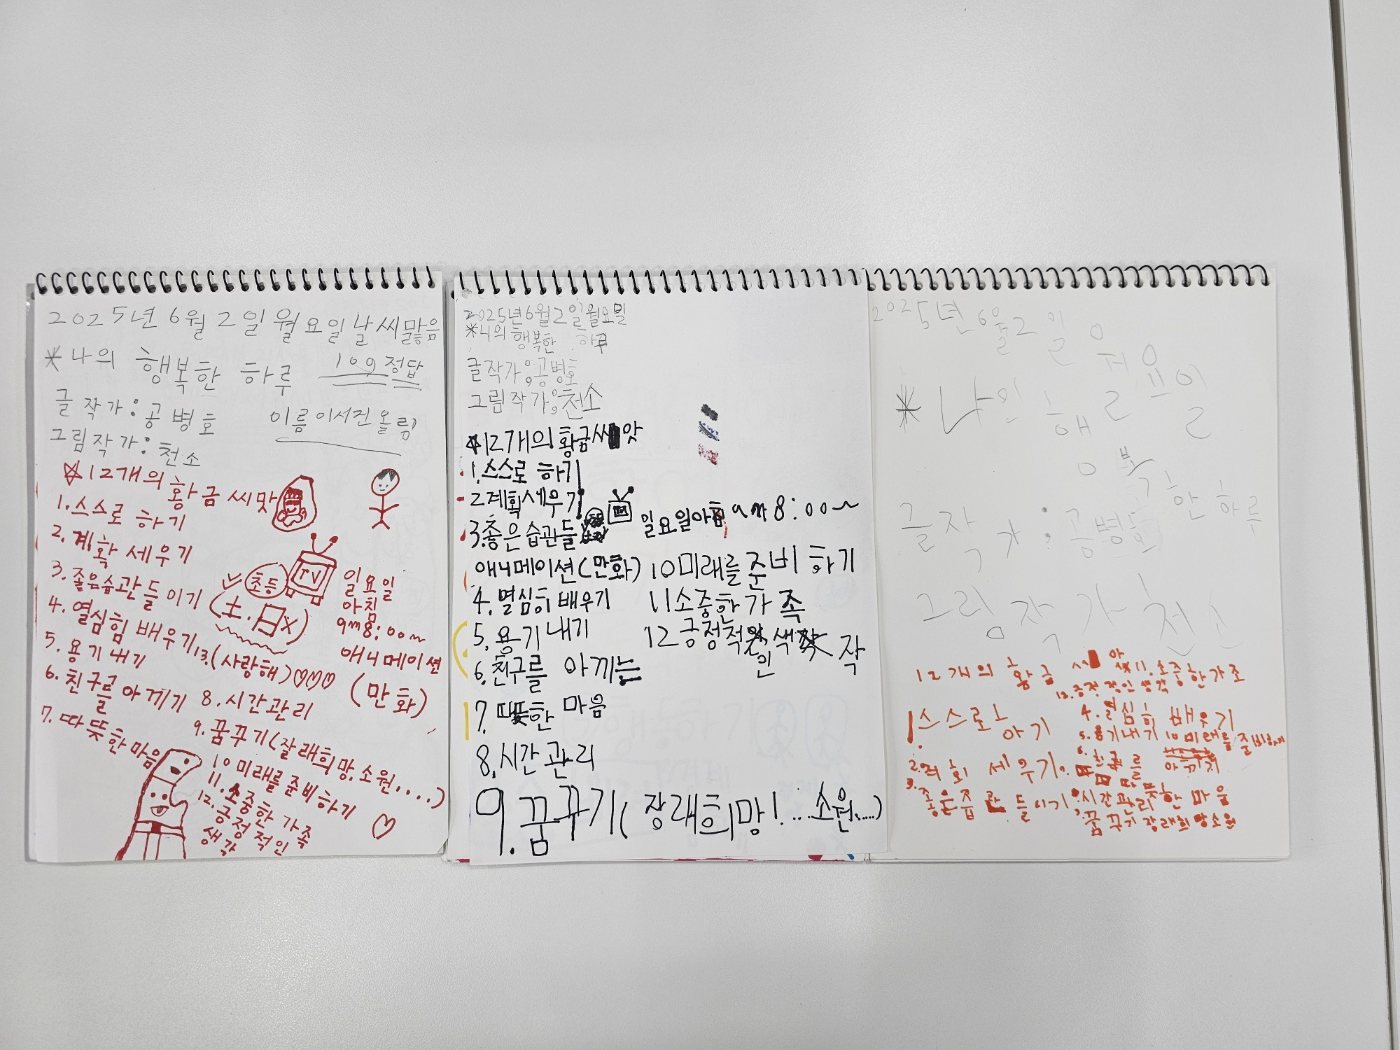 2025년 6월 2일 월요일 날씨맑음
*나의 행복한 하루
정답
글 작가: 공병호
그림작가: 천소
이름 이서진 올림
12개의 황금씨맛
1. 스스로 하기
2. 계확 세우기
3. 좋음습관들 이기
4. 열심힘 배우기
5. 용기내기
6. 친구를 아께기
7. 따뜻한마음
8. 시간관리
9. 꿈꾸기(잘래희망, 소원,....)
10 미래를 준비하기
11. 소중한 가족
12. 긍정적인
생각
13. (사랑해)♡♡♡
초등
(土.日x)
TV
일요일
아침
am8:00~
애니메이션
(만화)
2025년6월2일월요일
*나의 행복한 하루
글작가:공병호
그림작가:천소
12개의 황금씨앗
1. 스스로 하기
2. 계획세우기
3. 좋은 습관들
일요일아침 am8:00~
애니메이션(만화)
4. 열심히 배우기
5. 용기내기
6. 친구를 아끼는
7. 따뜻한 마음
8. 시간관리
9. 꿈꾸기(장래희망!...소원....)
10미래를 준비 하기
11소중한가족
12.긍정적인
2025년 6월2일
월요일
*나의 행복한하루
글작가: 공병호
그림작가 천소
12개의 황금
11. 소중한가조
12. 긍정적인 생각
1. 스스로
아기
2. 계회 세우기.
4. 열심히 배우기
5. 용기내기
10 미래를 준비하기
따뜻한 마음
시간관리
꿈꾸기 장래희망소원